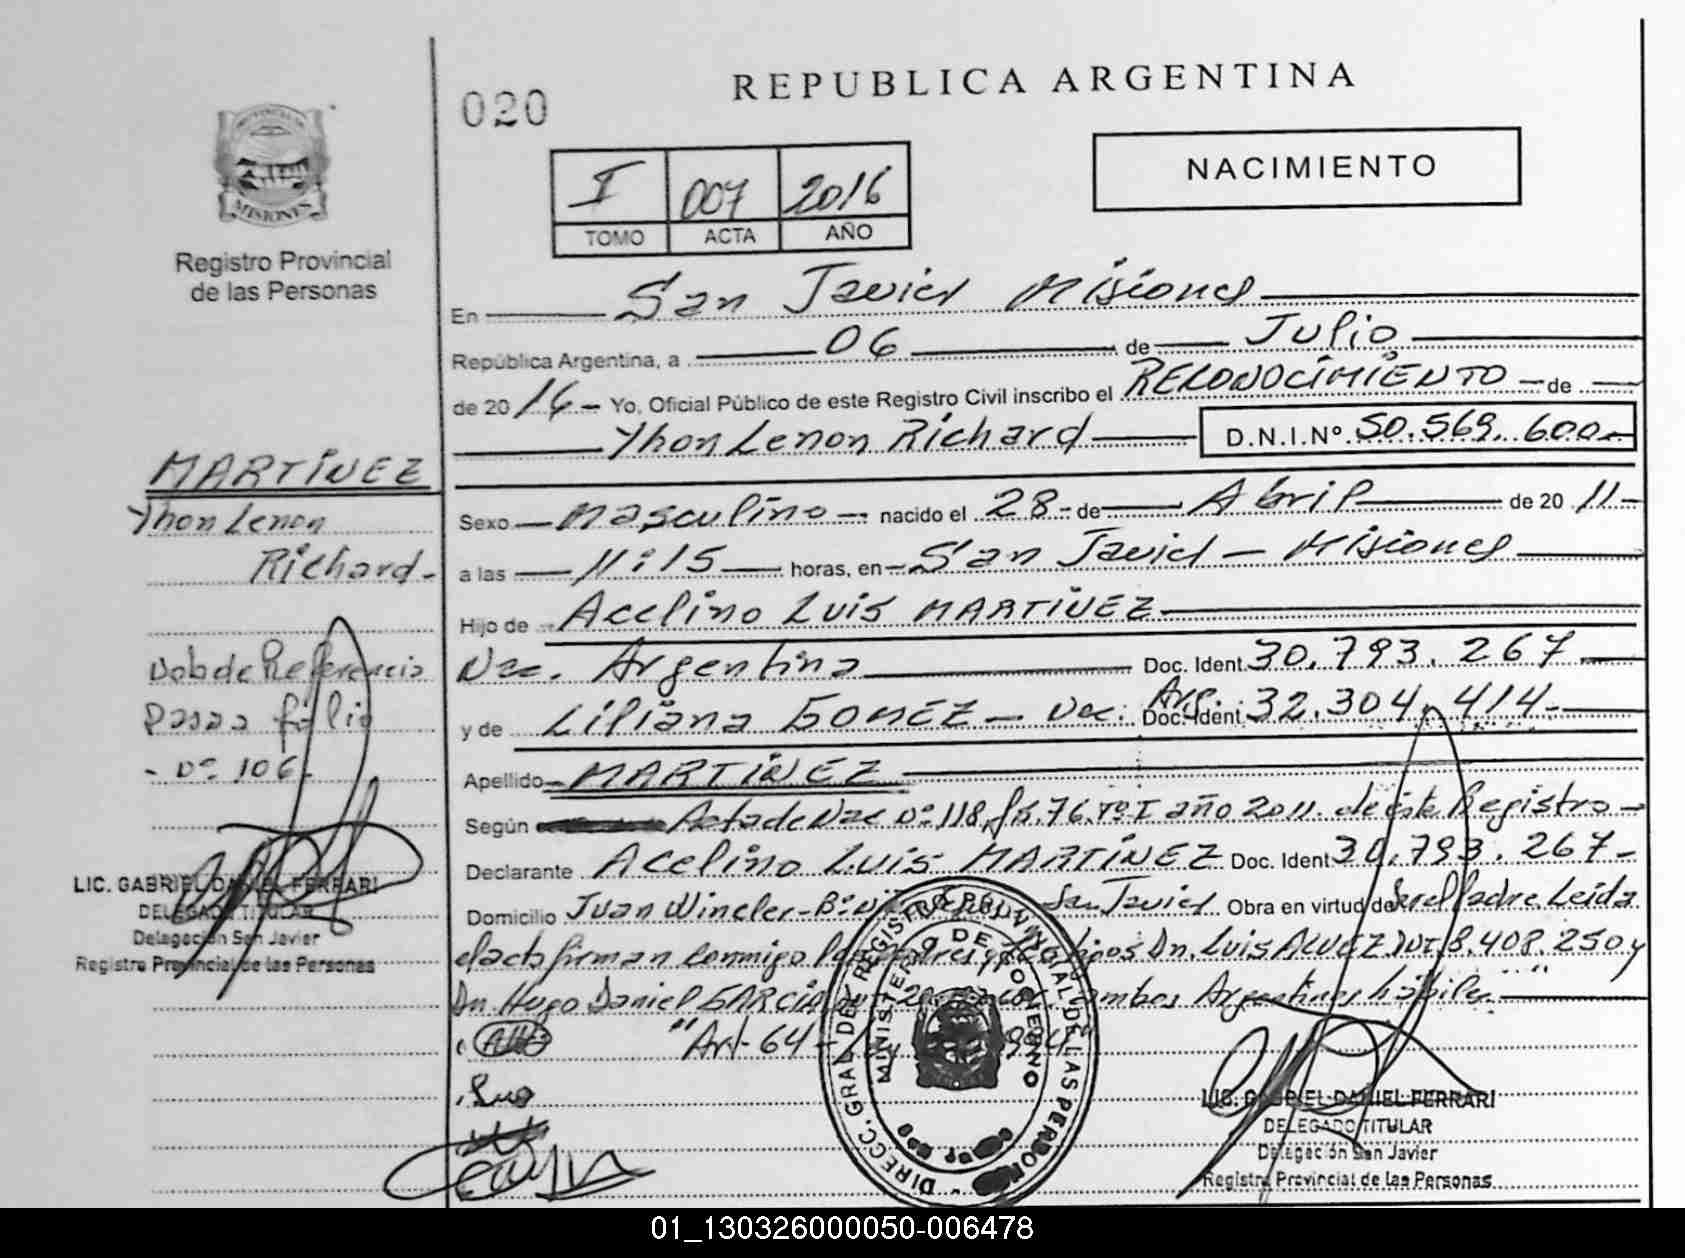 020
REPUBLICA ARGENTINA
NACIMIENTO
I 007 2016
TOMO ACTA AÑO
MISIONES
Registro Provincial
de las Personas
En San Javier Misiones
República Argentina, a 06 de Julio
de 2016 Yo, Oficial Público de este Registro Civil inscribo el RECONOCIMIENTO de
Yhon Lenon Richard D.N.I.Nº 50.569.600
MARTÍNEZ
Yhon Lenon
Richard
Sexo Masculino nacido el 28 de Abril de 2011
a las 11:15 horas, en San Javier - Misiones
Hijo de Acelino Luis MARTÍNEZ
Nac. Argentina Doc. Ident. 30.793.267
y de Liliana GOMEZ - Nac. Arg. Doc. Ident. 32.304.414
Apellido MARTÍNEZ
Nota de Referencia
pasa a folio
- Nº 106
Según Acta de Nac Nº 118 fs. 76 Tº I año 2011. de éste Registro
Declarante Acelino Luis MARTÍNEZ Doc. Ident. 30.793.267
Domicilio Juan Wincler - Bº San Javier Obra en virtud de Ser el Padre Leida
el acta firman conmigo Luis ALVEZ DNI 8.408.250 y
Dn. Hugo Daniel GARCÍA ambos Argentinos hábiles
"Art 64 -
LIC. GABRIEL DANIEL FERRARI
DELEGADO TITULAR
Delegación San Javier
Registro Provincial de las Personas
DIRECC. GRAL. DE REGISTRO PROVINCIAL DE LAS PERSONAS
MINISTERIO DE GOBIERNO
LIC. GABRIEL DANIEL FERRARI
DELEGADO TITULAR
Delegación San Javier
Registro Provincial de Las Personas
01_130326000050-006478